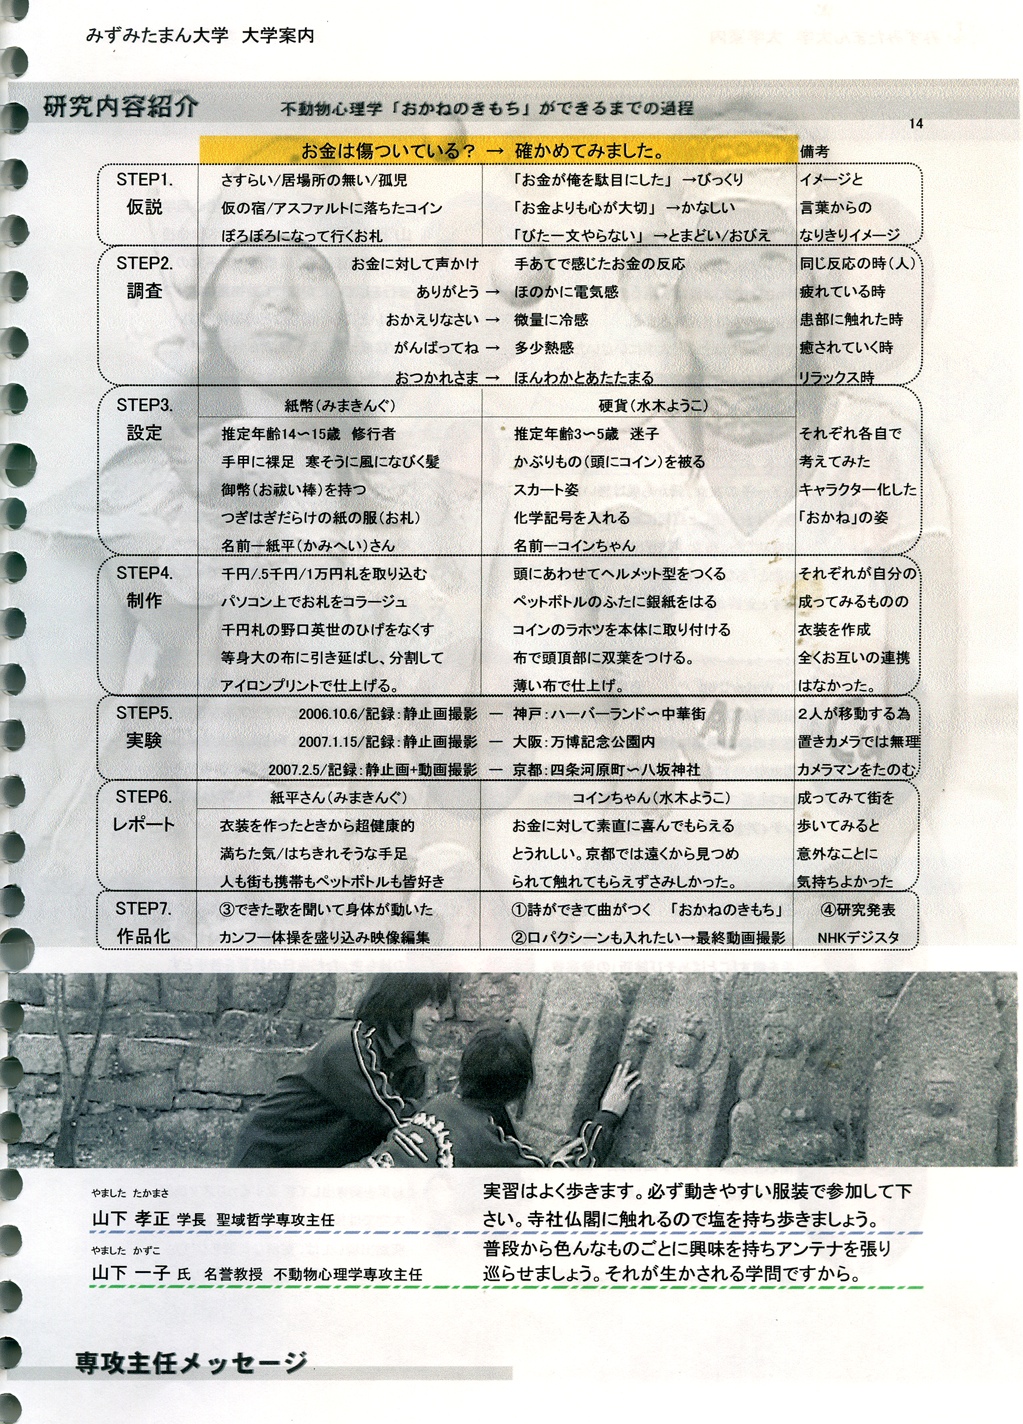 みずみたまん大学 大学案内
研究内容紹介 不動物心理学「おかねのきもち」ができるまでの過程
14
お金は傷ついている？ → 確かめてみました。 備考
STEP1. さすらい/居場所の無い/孤児 「お金が俺を駄目にした」 →びっくり イメージと
仮説 仮の宿/アスファルトに落ちたコイン 「お金よりも心が大切」 →かなしい 言葉からの
ぼろぼろになって行くお札 「びた一文やらない」 →とまどい/おびえ なりきりイメージ
STEP2. お金に対して声かけ 手あてで感じたお金の反応 同じ反応の時(人)
調査 ありがとう → ほのかに電気感 疲れている時
おかえりなさい → 微量に冷感 患部に触れた時
がんばってね → 多少熱感 癒されていく時
おつかれさま → ほんわかとあたたまる リラックス時
STEP3. 紙幣(みまきんぐ) 硬貨(水木ようこ)
設定 推定年齢14～15歳 修行者 推定年齢3～5歳 迷子 それぞれ各自で
手甲に裸足 寒そうに風になびく髪 かぶりもの(頭にコイン)を被る 考えてみた
御幣(お祓い棒)を持つ スカート姿 キャラクター化した
つぎはぎだらけの紙の服(お札) 化学記号を入れる 「おかね」の姿
名前―紙平(かみへい)さん 名前―コインちゃん
STEP4. 千円/.5千円/1万円札を取り込む 頭にあわせてヘルメット型をつくる それぞれが自分の
制作 パソコン上でお札をコラージュ ペットボトルのふたに銀紙をはる 成ってみるものの
千円札の野口英世のひげをなくす コインのラホツを本体に取り付ける 衣装を作成
等身大の布に引き延ばし、分割して 布で頭頂部に双葉をつける。 全くお互いの連携
アイロンプリントで仕上げる。 薄い布で仕上げ。 はなかった。
STEP5. 2006.10.6/記録：静止画撮影 ― 神戸：ハーバーランド～中華街 2人が移動する為
実験 2007.1.15/記録：静止画撮影 ― 大阪：万博記念公園内 置きカメラでは無理
2007.2.5/記録：静止画+動画撮影 ― 京都：四条河原町～八坂神社 カメラマンをたのむ
STEP6. 紙平さん(みまきんぐ) コインちゃん(水木ようこ) 成ってみて街を
レポート 衣装を作ったときから超健康的 お金に対して素直に喜んでもらえる 歩いてみると
満ちた気/はちきれそうな手足 とうれしい。京都では遠くから見つめ 意外なことに
人も街も携帯もペットボトルも皆好き られて触れてもらえずさみしかった。 気持ちよかった
STEP7. ③できた歌を聞いて身体が動いた ①詩ができて曲がつく 「おかねのきもち」 ④研究発表
作品化 カンフー体操を盛り込み映像編集 ②口パクシーンも入れたい→最終動画撮影 NHKデジスタ
やました たかまさ
山下 孝正 学長 聖域哲学専攻主任
実習はよく歩きます。必ず動きやすい服装で参加して下
さい。寺社仏閣に触れるので塩を持ち歩きましょう。
やました かずこ
山下 一子 氏 名誉教授 不動物心理学専攻主任
普段から色んなものごとに興味を持ちアンテナを張り
巡らせましょう。それが生かされる学問ですから。
専攻主任メッセージ